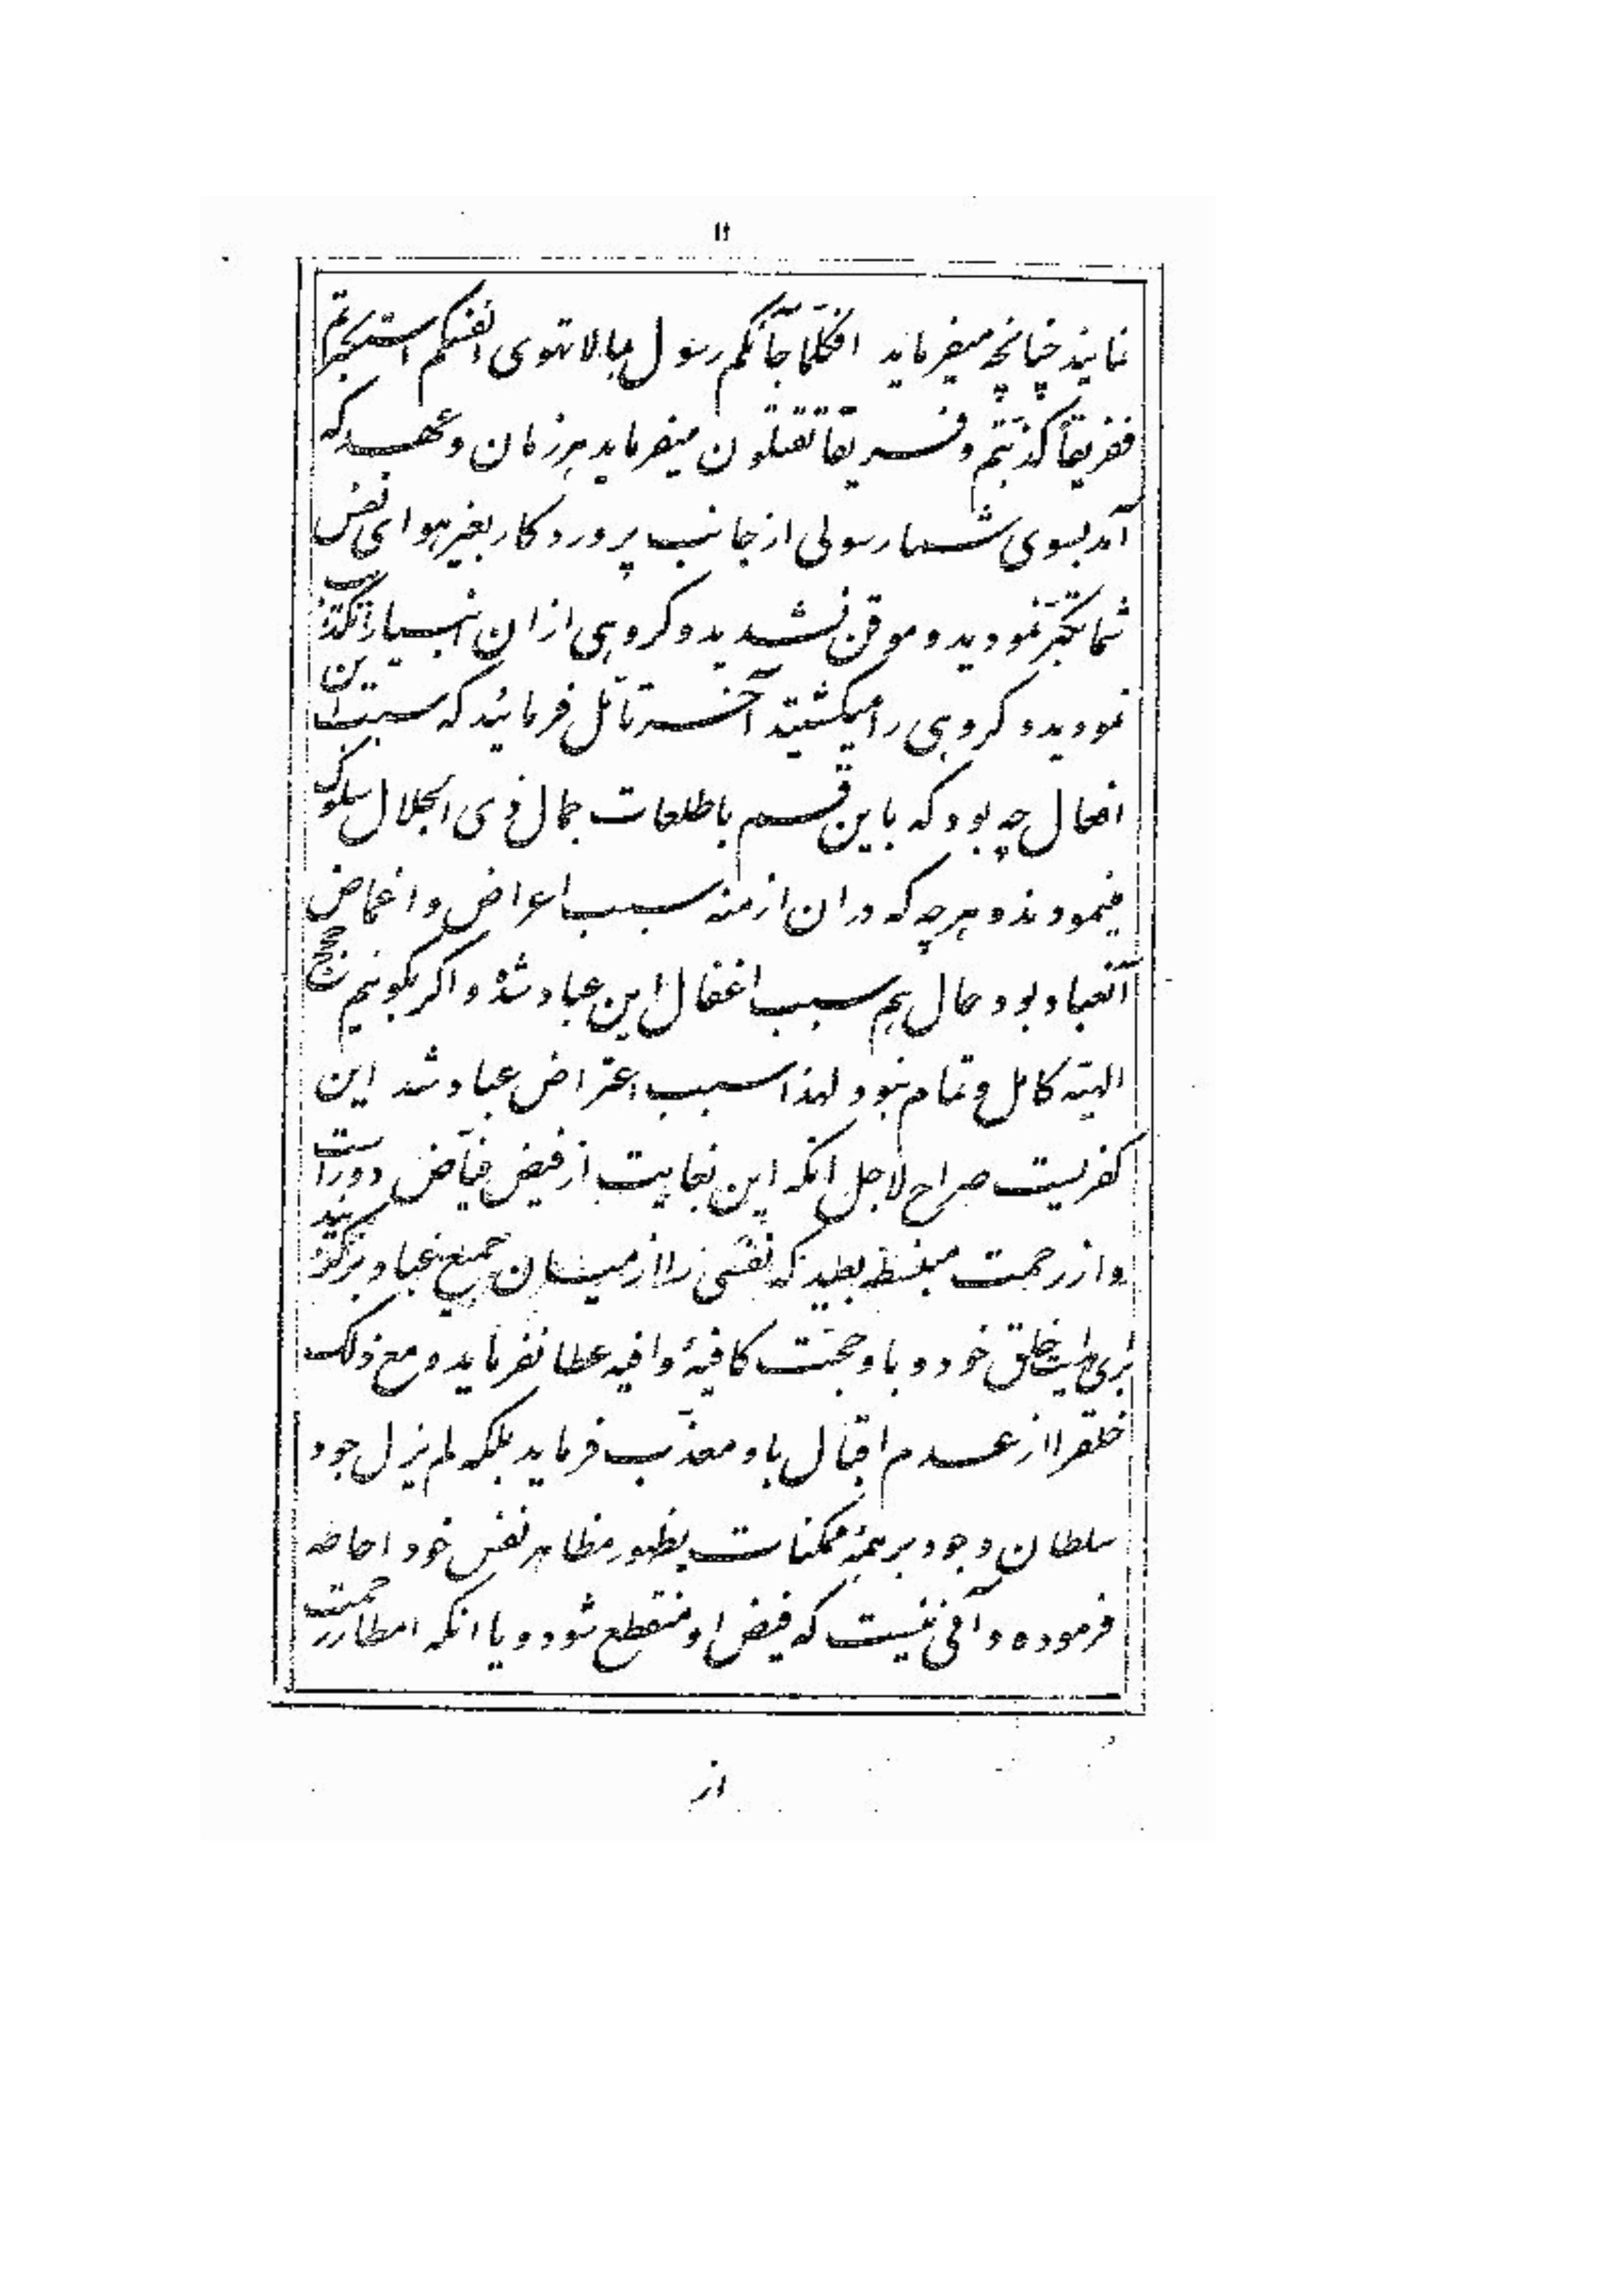 ۱۱
نمایند چنانچه میفرماید افکلّما جآئکم رسول بما لا تهوی انفسکم استکبرتم
ففریقاً کذّبتم و فریقاً تقتلون میفرماید هر زمان و عهد که
آمد بسوی شما رسولی از جانب پروردکار بغیر هوای نفس
شما تکبّر نمودید و موقن نشدید و کروهی از ان انبیا را تکذیب
نمودید و کروهی را میکشتید آخر تأمّل فرمائید که سبب این
افعال چه بود که باین قسم با طلعات جمال ذی الجلال سلوک
مینمودند و هر چه که در ان ازمنه سبب اعراض و اغماض
آنعباد بود حال هم سبب اغفال این عباد شده و اکر بکوئیم حجج
الهیّه کامل و تمام نبود لهذا سبب اعتراض عباد شد این
کفریست صراح لاجل انکه این بغایت از فیض فیّاض دور است
و از رحمت منبسطه بعید که نفسی را از میان جمیع عباد برکزیند
برای هدایت خلق خود و باو حجّت کافیهٔ وافیه عطا نفرماید و مع ذلک
خلق را از عدم اقبال باو معذّب فرماید بلکه لم یزل جود
سلطان وجود بر همهٔ ممکنات بظهور مظاهر نفس خود احاطه
فرموده و آنی نیست که فیض او منقطع شود و یا انکه امطار رحمت
از